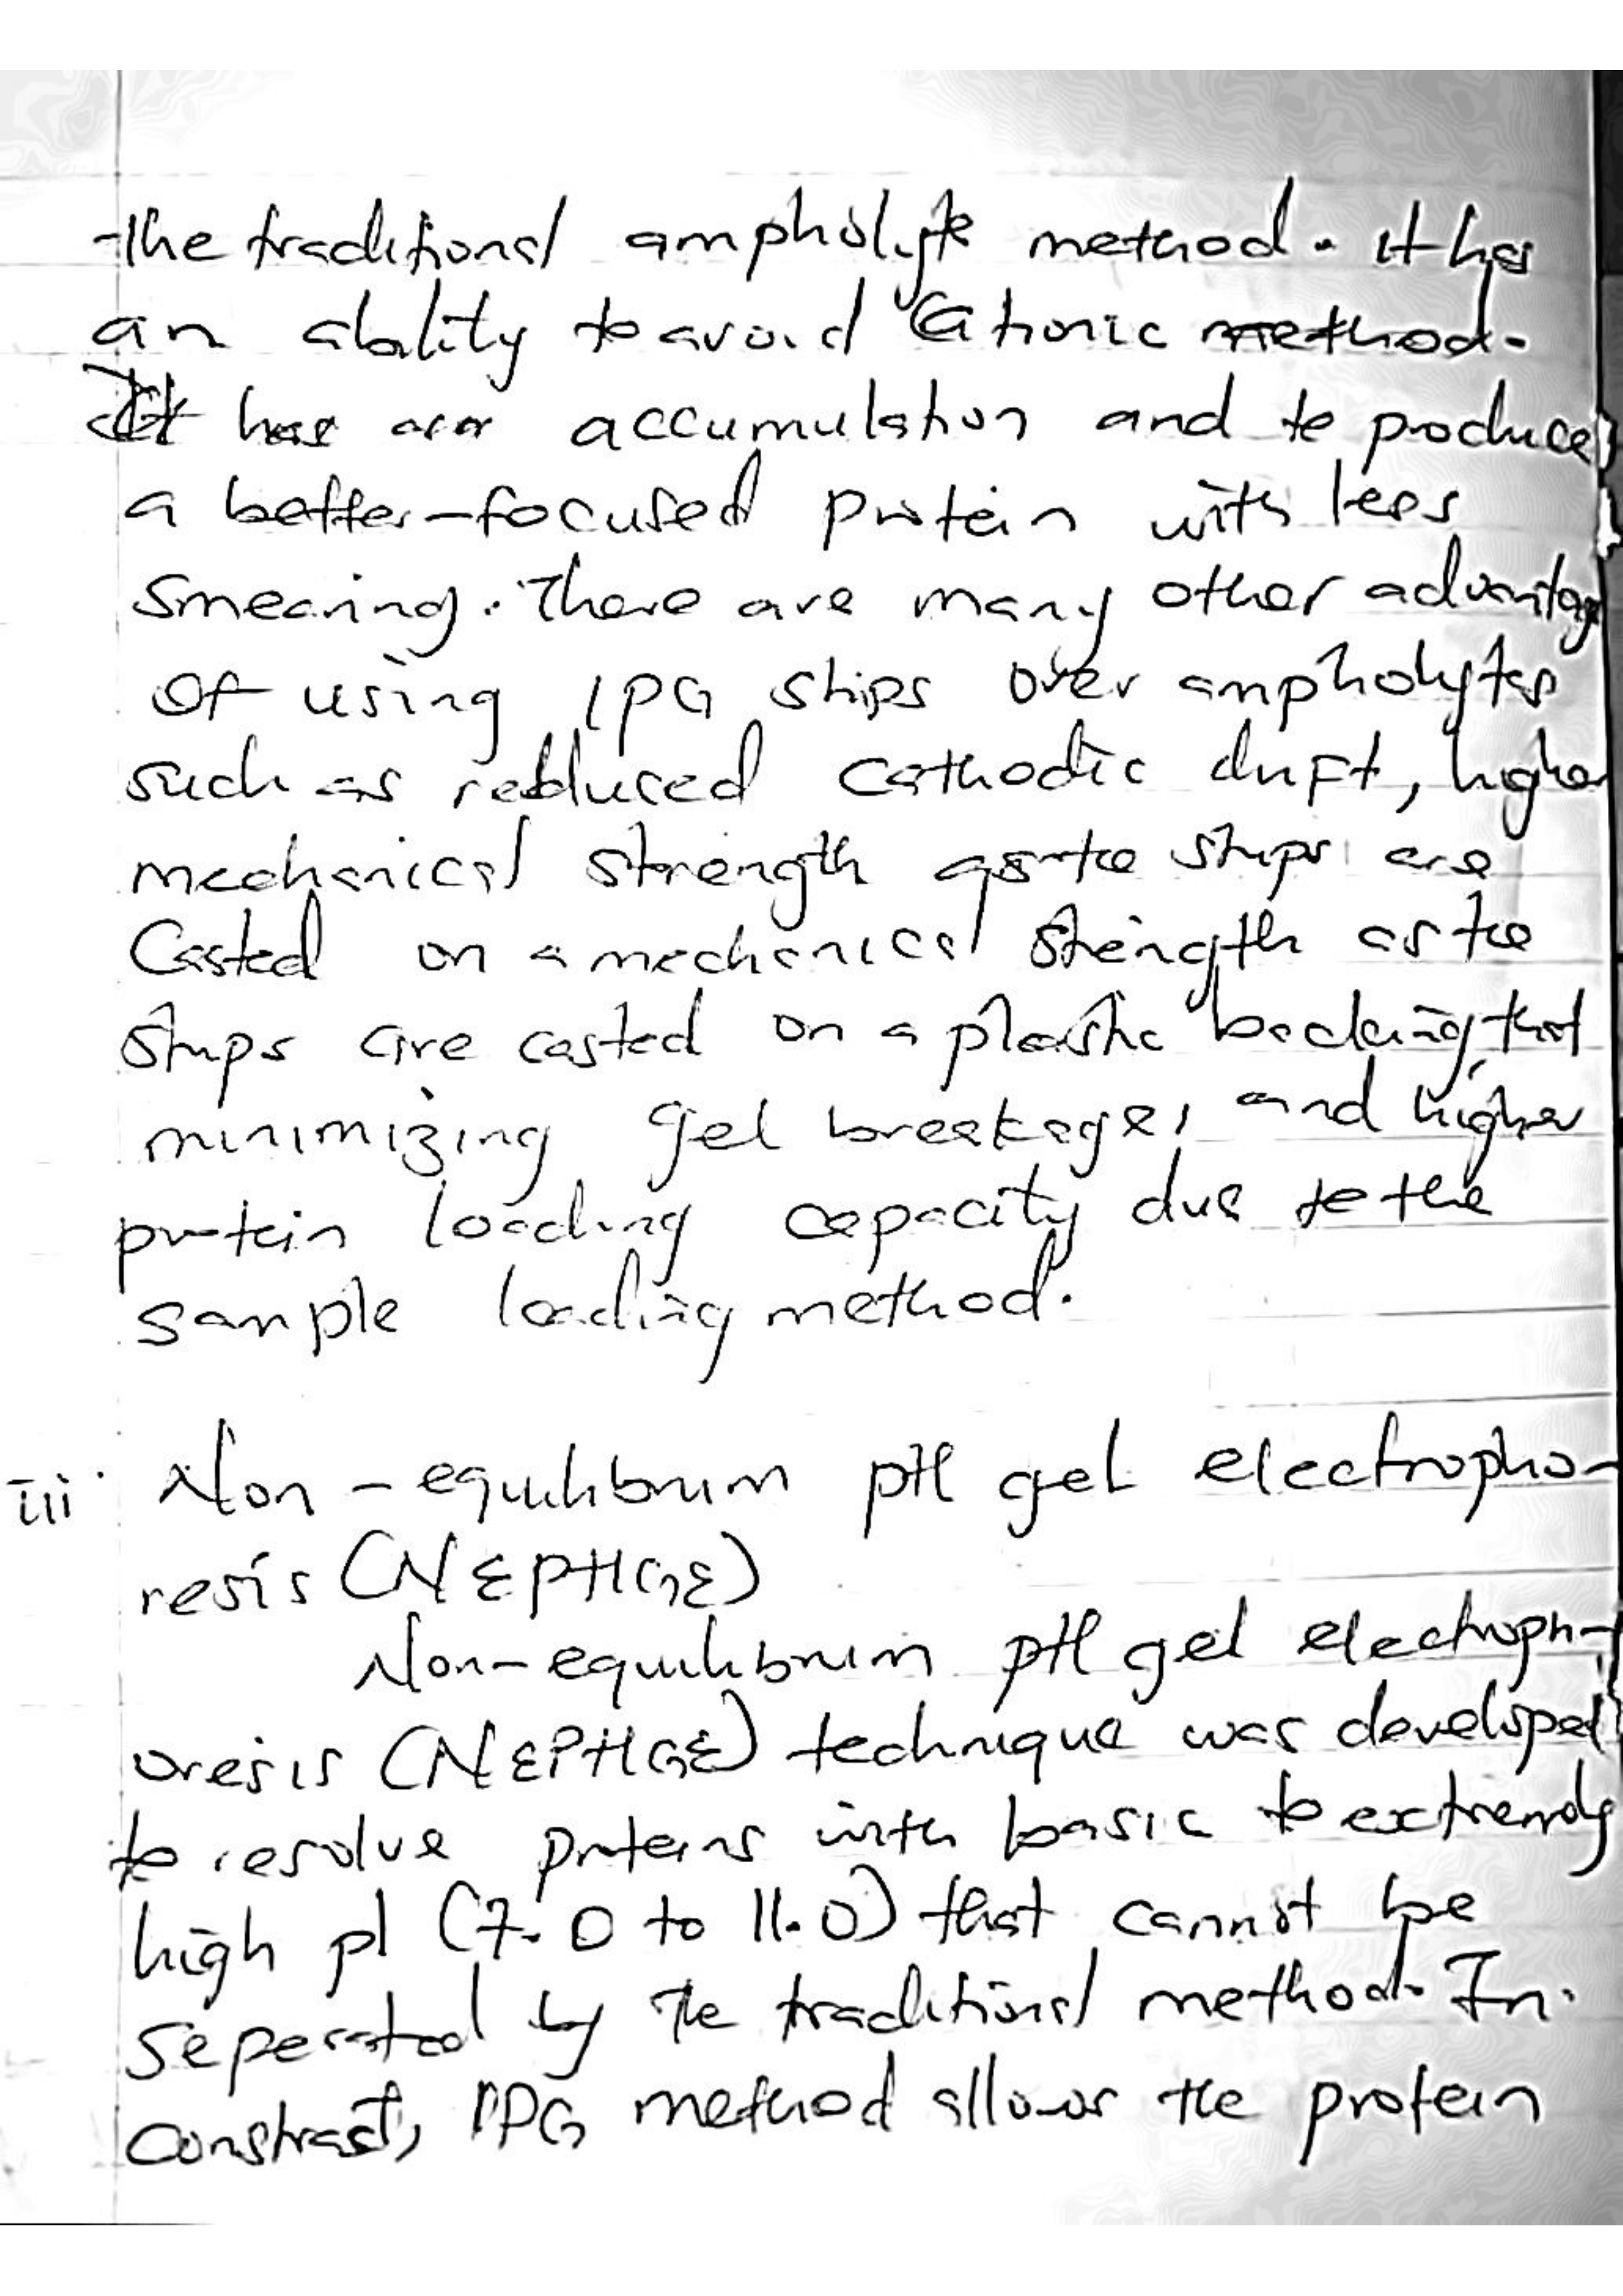 the traditional ampholyte method. it has
an ability to avoid Cationic method.
It has accumulation and to produce
a better-focused protein with less
smearing. There are many other advantage
of using IPG strips over ampholytes
such as reduced cathodic drift, higher
mechanical strength as the strips are
Casted on a mechanical strength as the
strips are casted on a plastic backing, that
minimizing gel breakage, and higher
protein loading capacity due to the
sample loading method.
iii. Non-equilibrium pH gel electropho-
resis (NEPHGE)
Non-equilibrium pH gel electroph-
oresis (NEPHGE) technique was developed
to resolve proteins with basic to extremely
high pI (7.0 to 11.0) that cannot be
seperated by the traditional method. In
constrast, IPG method allows the protein